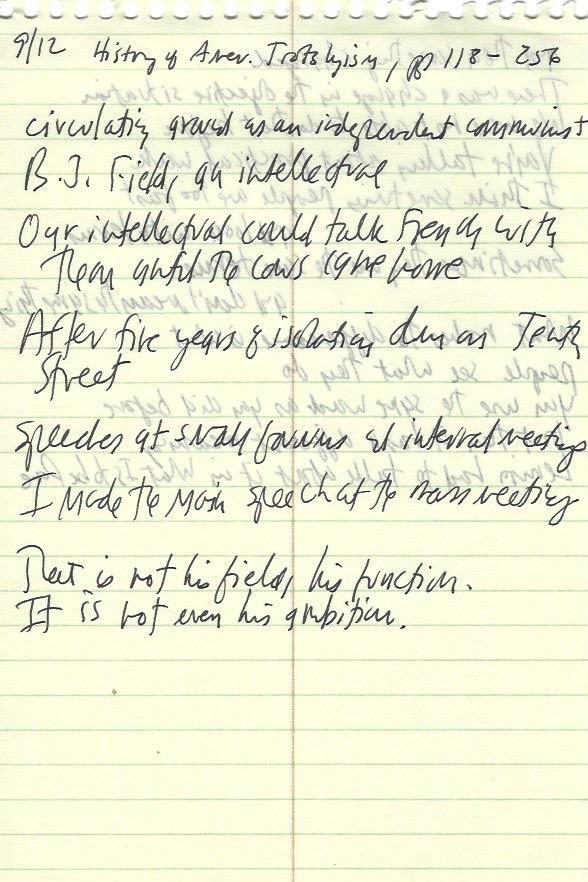 9/12 History of Amer. Trotskyism, pp 118-256
circulating around as an independent communist
B.J. Field, an intellectual
Our intellectual could talk French with
them until the cows came home
After five years of isolation, down on Tenth
Street
speeches at small forums at internal meetings
I made the main speech at the mass meeting
That is not his field, his function.
It is not even his ambition.